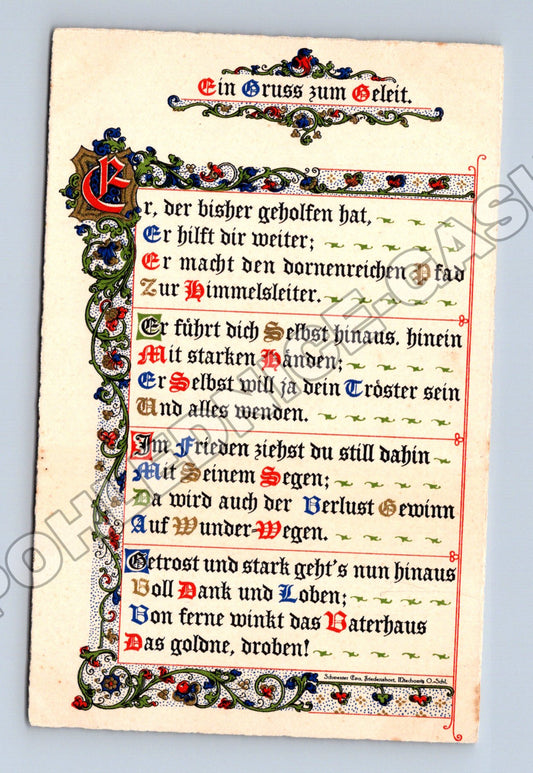 Ein Gruss zum Geleit.
Er, der bisher geholfen hat,
Er hilft dir weiter;
Er macht den dornenreichen Pfad
Zur Himmelsleiter.
Er führt dich Selbst hinaus. hinein
Mit starken Händen;
Er Selbst will ja dein Tröster sein
Und alles wenden.
Im Frieden ziehst du still dahin
Mit Seinem Segen;
Da wird auch der Verlust Gewinn
Auf Wunder-Wegen.
Getrost und stark geht's nun hinaus
Voll Dank und Loben;
Von ferne winkt das Vaterhaus
Das goldne, droben!
Schwester Eva, Friedenshort, Miechowitz O.-Schl.